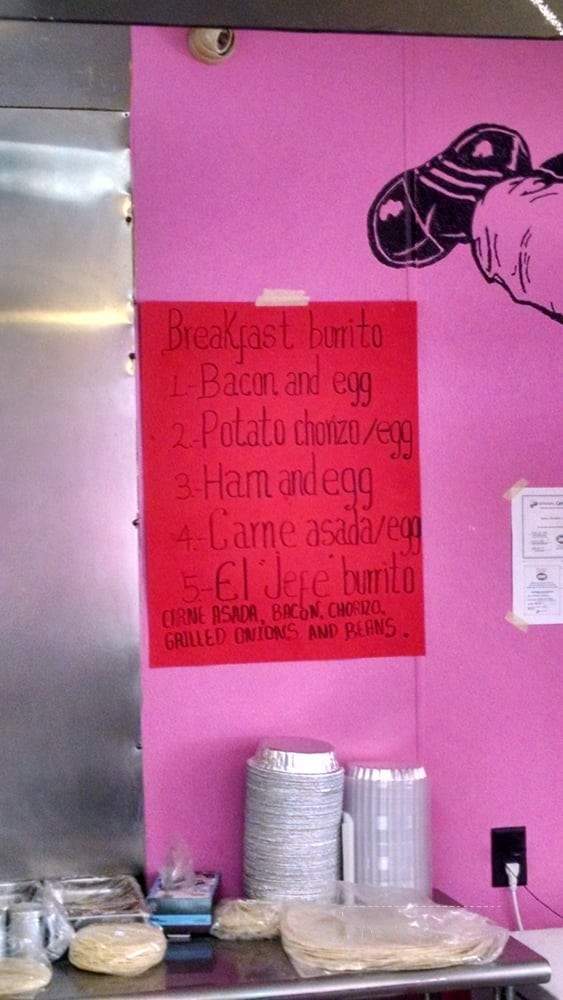 Breakfast burrito
1-Bacon and egg
2-Potato chorizo/egg
3-Ham and egg
4-Carne asada/egg
5-El "Jefe" burrito
CARNE ASADA, BACON, CHORIZO.
GRILLED ONIONS AND BEANS.